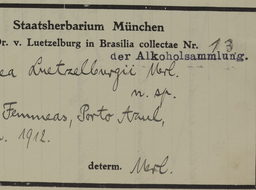 Staatsherbarium München
Dr. v. Luetzelburg in Brasilia collectae Nr. 13
der Alkoholsammlung.
ea Luetzelburgii Merl.
n. sp.
Femmeas, Porto Azul,
. 1912.
determ. Merl.